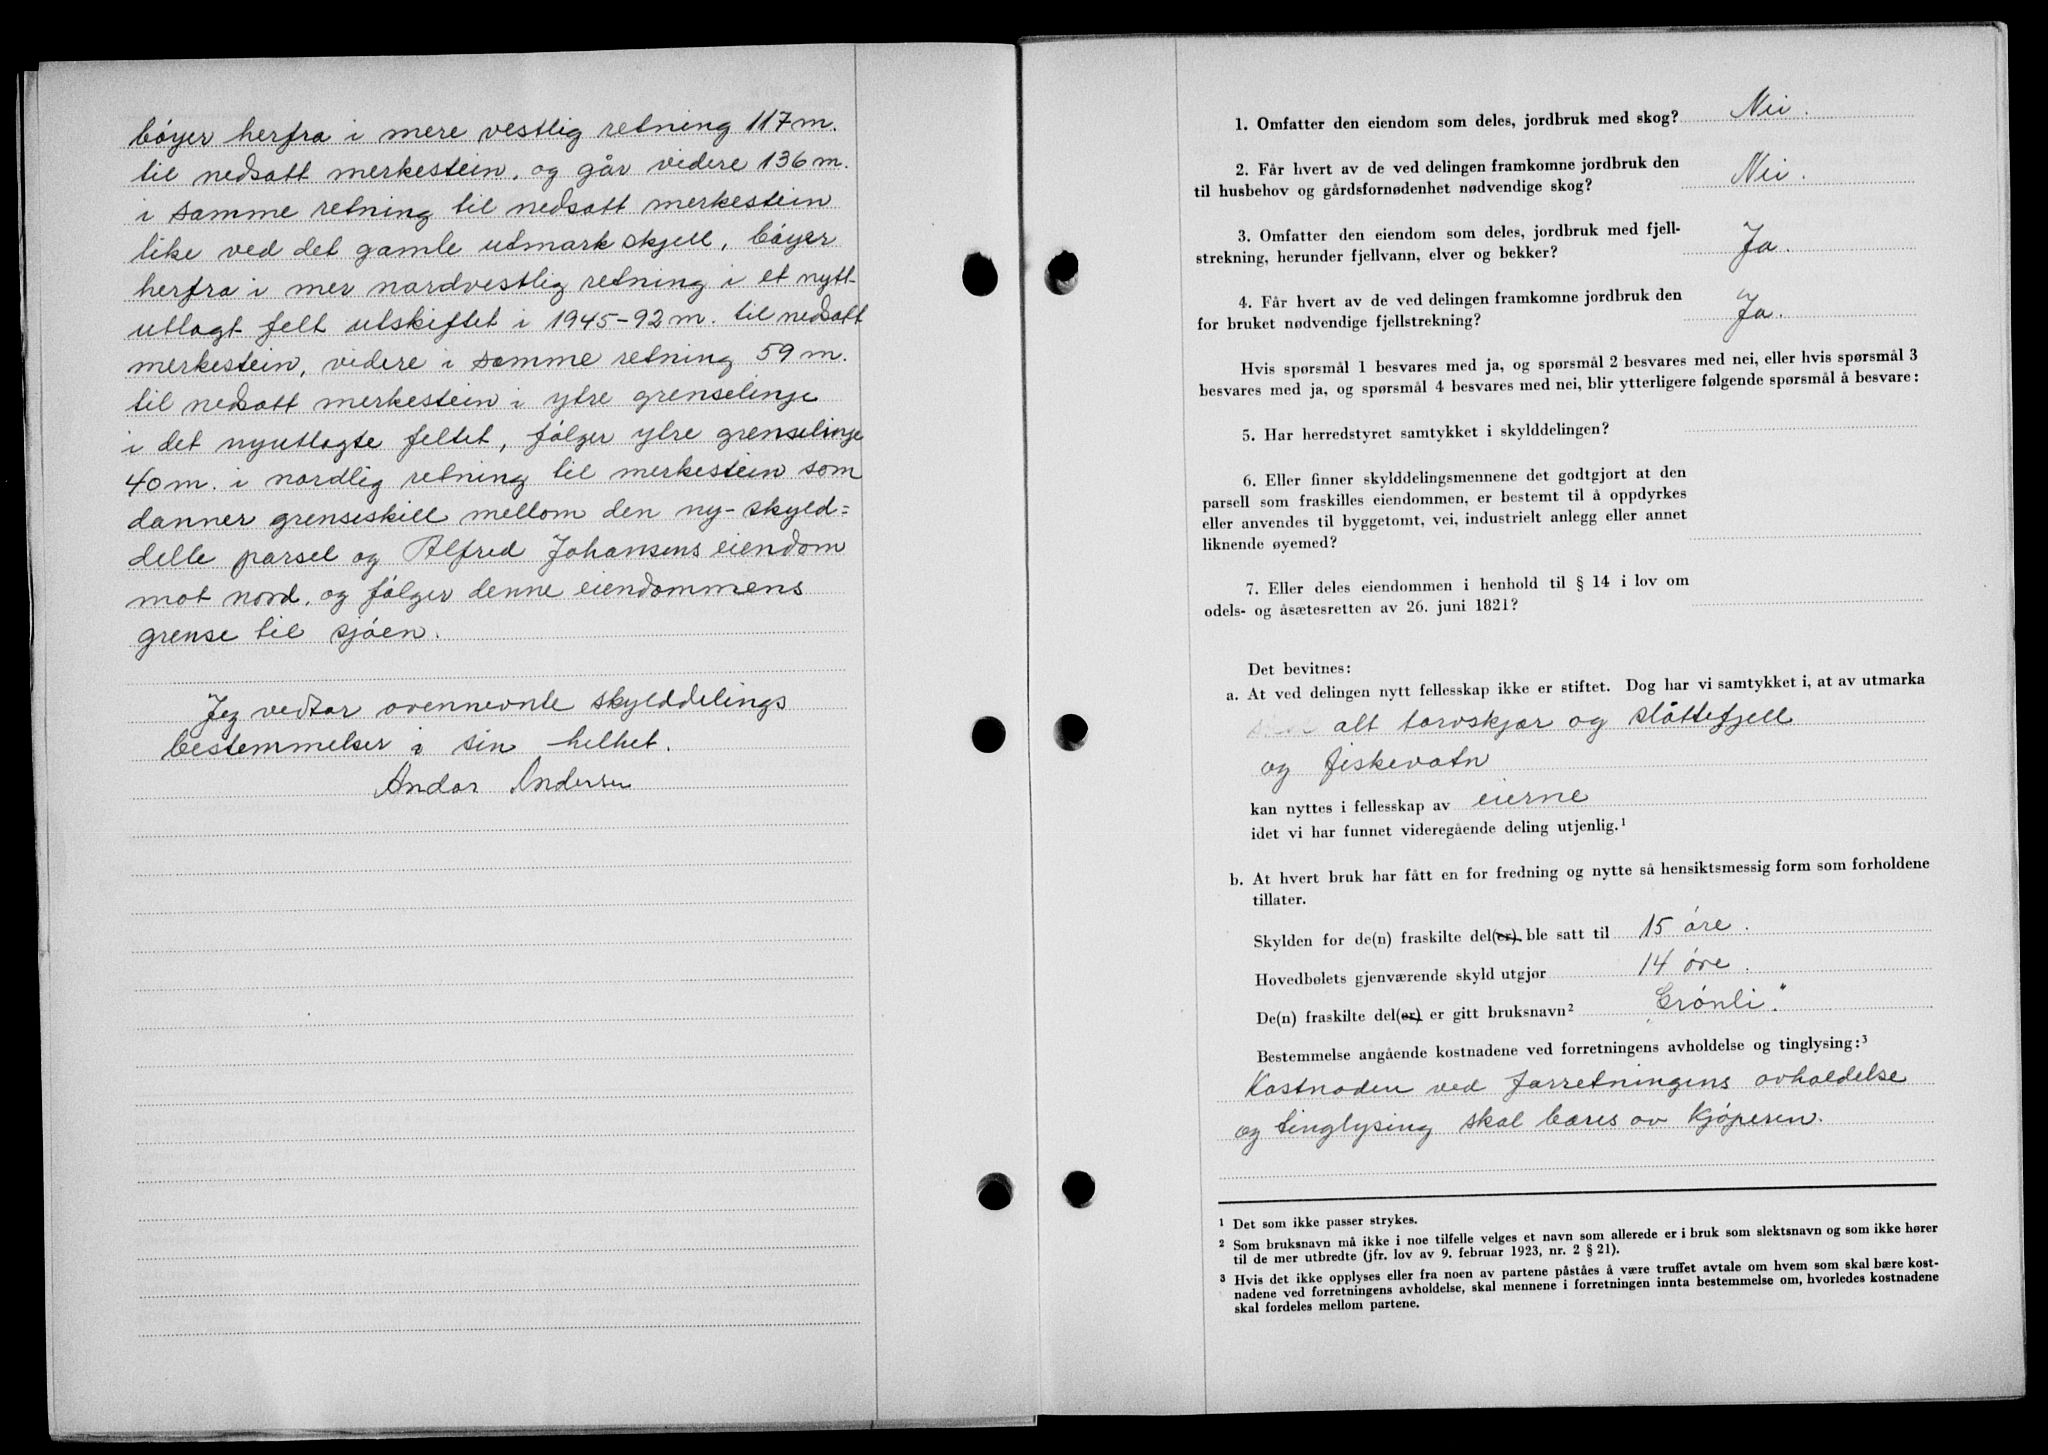 bøyer herfra i mere vestlig retning 117 m.
til nedsatt merkestein, og går videre 136 m.
i samme retning til nedsatt merkestein
like ved det gamle utmark skjell, bøyer
herfra i mer nordvestlig retning i et nytt-
utlagt felt utskiftet i 1945 - 92 m. til nedsatt
merkestein, videre i samme retning 59 m.
til nedsatt merkestein i ytre grenselinje
i det nyutlagte feltet, følger ytre grenselinje
40 m. i nordlig retning til merkestein som
danner grenseskill mellom den ny-skyld=
delte parsel og Alfred Johansens eiendom
mot nord, og følger denne eiendommens
grense til sjøen.
Jeg vedtar ovennevnte skylddelings
bestemmelser i sin helhet.
Andor Andersen
1. Omfatter den eiendom som deles, jordbruk med skog? Nei.
2. Får hvert av de ved delingen framkomne jordbruk den
til husbehov og gårdsfornødenhet nødvendige skog? Nei.
3. Omfatter den eiendom som deles, jordbruk med fjell-
strekning, herunder fjellvann, elver og bekker? Ja.
4. Får hvert av de ved delingen framkomne jordbruk den
for bruket nødvendige fjellstrekning? Ja.
Hvis spørsmål 1 besvares med ja, og spørsmål 2 besvares med nei, eller hvis spørsmål 3
besvares med ja, og spørsmål 4 besvares med nei, blir ytterligere følgende spørsmål å besvare:
5. Har herredstyret samtykket i skylddelingen?
6. Eller finner skylddelingsmennene det godtgjort at den
parsell som fraskilles eiendommen, er bestemt til å oppdyrkes
eller anvendes til byggetomt, vei, industrielt anlegg eller annet
liknende øyemed?
7. Eller deles eiendommen i henhold til § 14 i lov om
odels- og åsætesretten av 26. juni 1821?
Det bevitnes:
a. At ved delingen nytt fellesskap ikke er stiftet. Dog har vi samtykket i, at av utmarka
alt torvskjær og slåttefjell
og fiskevatn
kan nyttes i fellesskap av eierne
idet vi har funnet videregående deling utjenlig.¹
b. At hvert bruk har fått en for fredning og nytte så hensiktsmessig form som forholdene
tillater.
Skylden for de(n) fraskilte del(er) ble satt til 15 øre.
Hovedbølets gjenværende skyld utgjør 14 øre.
De(n) fraskilte del(er) er gitt bruksnavn² „Grønli“.
Bestemmelse angående kostnadene ved forretningens avholdelse og tinglysing:³
Kostnaden ved forretningens avholdelse
og tinglysing skal bæres av kjøperen.
¹ Det som ikke passer strykes.
² Som bruksnavn må ikke i noe tilfelle velges et navn som allerede er i bruk som slektsnavn og som ikke hører
til de mer utbredte (jfr. lov av 9. februar 1923, nr. 2 § 21).
³ Hvis det ikke opplyses eller fra noen av partene påståes å være truffet avtale om hvem som skal bære kost-
nadene ved forretningens avholdelse, skal mennene i forretningen innta bestemmelse om, hvorledes kostnadene
skal fordeles mellom partene.